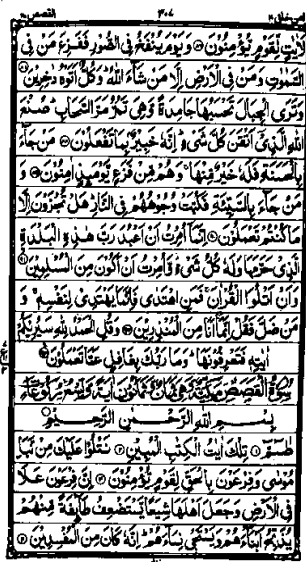 القصص ٢٨ ٣٠٧ امن خلق ٢٠
لَاٰيٰتٍ لِّقَوْمٍ يُّؤْمِنُوْنَ ۞ وَيَوْمَ يُنْفَخُ فِي الصُّوْرِ فَفَزِعَ مَنْ فِي
السَّمٰوٰتِ وَمَنْ فِي الْاَرْضِ اِلَّا مَنْ شَآءَ اللّٰهُ ؕ وَكُلٌّ اَتَوْهُ دٰخِرِيْنَ ۞
وَتَرَى الْجِبَالَ تَحْسَبُهَا جَامِدَةً وَّهِيَ تَمُرُّ مَرَّ السَّحَابِ ؕ صُنْعَ
اللّٰهِ الَّذِيْٓ اَتْقَنَ كُلَّ شَيْءٍ ؕ اِنَّهٗ خَبِيْرٌۢ بِمَا تَفْعَلُوْنَ ۞ مَنْ جَآءَ
بِالْحَسَنَةِ فَلَهٗ خَيْرٌ مِّنْهَا ۚ وَهُمْ مِّنْ فَزَعٍ يَّوْمَئِذٍ اٰمِنُوْنَ ۞ وَ
مَنْ جَآءَ بِالسَّيِّئَةِ فَكُبَّتْ وُجُوْهُهُمْ فِي النَّارِ ؕ هَلْ تُجْزَوْنَ اِلَّا
مَا كُنْتُمْ تَعْمَلُوْنَ ۞ اِنَّمَآ اُمِرْتُ اَنْ اَعْبُدَ رَبَّ هٰذِهِ الْبَلْدَةِ
الَّذِيْ حَرَّمَهَا وَلَهٗ كُلُّ شَيْءٍ ؗ وَّاُمِرْتُ اَنْ اَكُوْنَ مِنَ الْمُسْلِمِيْنَ ۞
وَاَنْ اَتْلُوَا الْقُرْاٰنَ ۚ فَمَنِ اهْتَدٰى فَاِنَّمَا يَهْتَدِيْ لِنَفْسِهٖ ۚ وَ
مَنْ ضَلَّ فَقُلْ اِنَّمَآ اَنَا مِنَ الْمُنْذِرِيْنَ ۞ وَقُلِ الْحَمْدُ لِلّٰهِ سَيُرِيْكُمْ
اٰيٰتِهٖ فَتَعْرِفُوْنَهَا ؕ وَمَا رَبُّكَ بِغَافِلٍ عَمَّا تَعْمَلُوْنَ ۞
سُوْرَةُ الْقَصَصِ مَكِّيَّةٌ وَّهِيَ ثَمَانٌ وَّثَمَانُوْنَ اٰيَةً وَّتِسْعُ رُكُوْعَاتٍ
بِسْمِ اللّٰهِ الرَّحْمٰنِ الرَّحِيْمِ
طٰسٓمّٓ ۞ تِلْكَ اٰيٰتُ الْكِتٰبِ الْمُبِيْنِ ۞ نَتْلُوْا عَلَيْكَ مِنْ نَّبَاِ
مُوْسٰى وَفِرْعَوْنَ بِالْحَقِّ لِقَوْمٍ يُّؤْمِنُوْنَ ۞ اِنَّ فِرْعَوْنَ عَلَا
فِي الْاَرْضِ وَجَعَلَ اَهْلَهَا شِيَعًا يَّسْتَضْعِفُ طَآئِفَةً مِّنْهُمْ
يُذَبِّحُ اَبْنَآءَهُمْ وَيَسْتَحْيٖ نِسَآءَهُمْ ؕ اِنَّهٗ كَانَ مِنَ الْمُفْسِدِيْنَ ۞